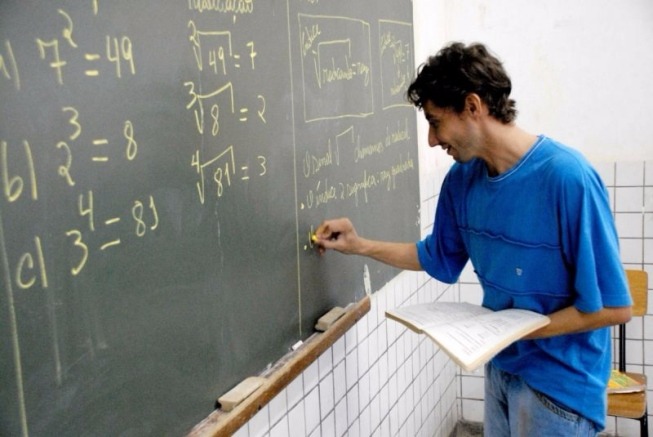 a) 7² = 49
b) 2³ = 8
c) 3⁴ = 81
²√49 = 7
³√8 = 2
⁴√81 = 3
índice
√radicando = raiz
O sinal √ chamamos de radical
. O índice 2 significa = raiz quadrada
.